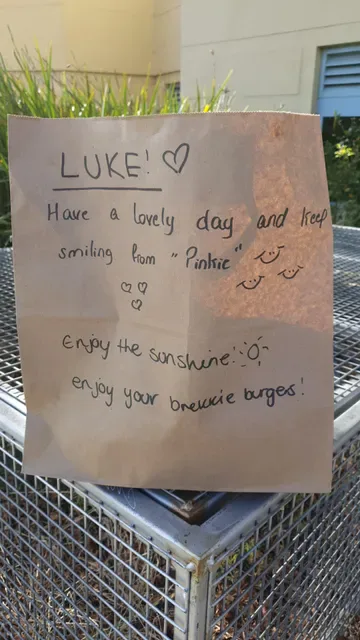 LUKE! ♡
Have a lovely day and keep
smiling from "Pinkie"
Enjoy the sunshine!
enjoy your brekkie burgers!